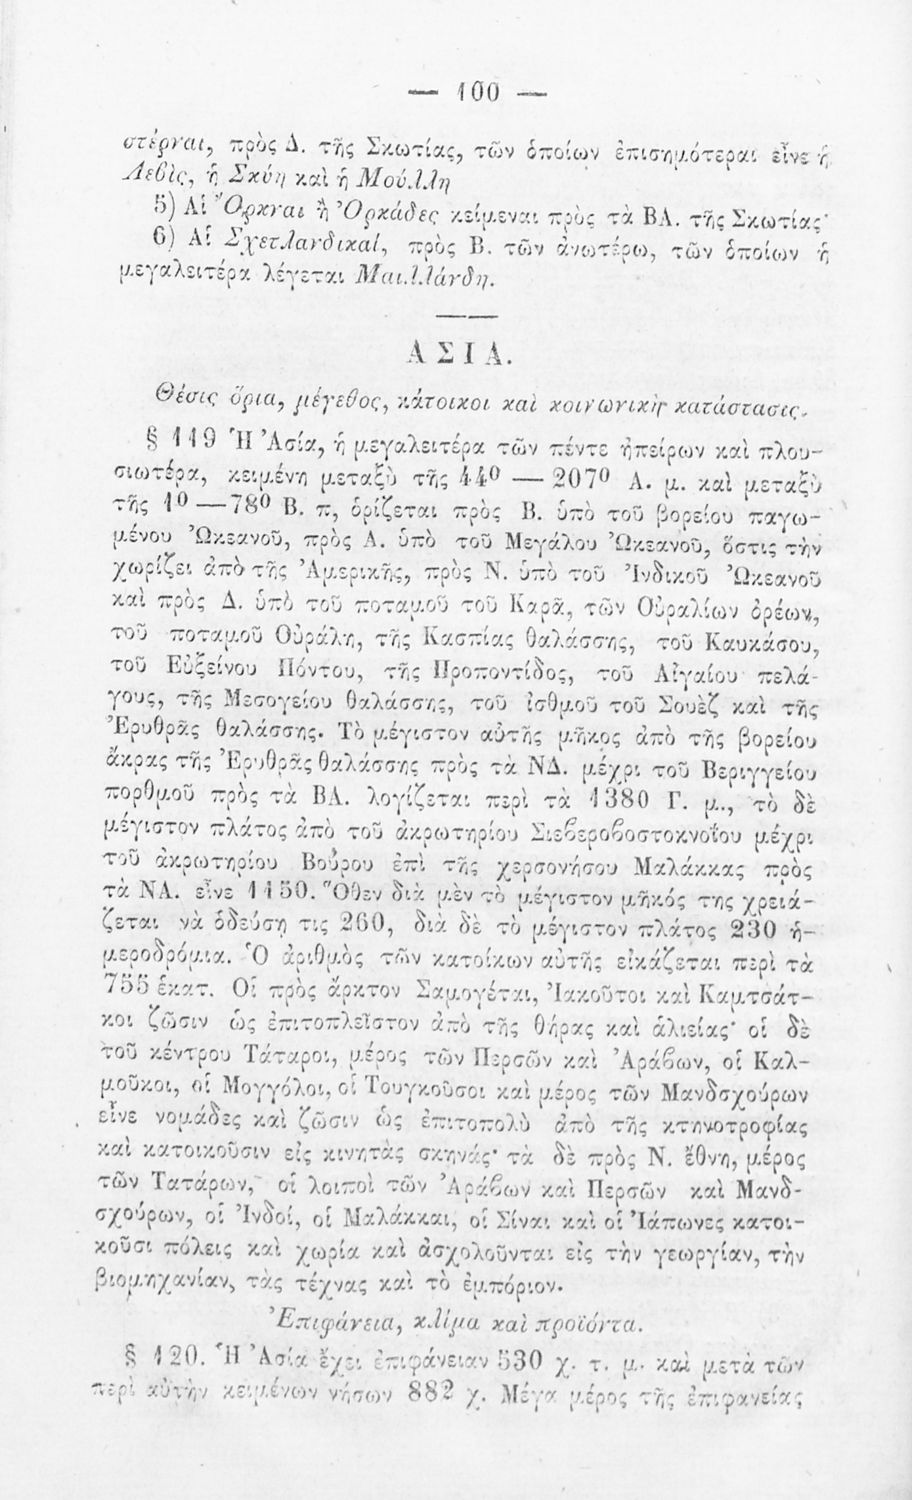 — 100 —
στέρναι, πρὸς Δ. τῆς Σκωτίας, τῶν ὁποίων ἐπισημότεραι εἶνε ἡ
Λεβὶς, ἡ Σκύη καὶ ἡ Μούλλη
5) Αἱ Ὄρκναι ἢ Ὀρκάδες κείμεναι πρὸς τὰ ΒΑ. τῆς Σκωτίας·
6) Αἱ Σχετλανδικαί, πρὸς Β. τῶν ἀνωτέρω, τῶν ὁποίων ἡ
μεγαλειτέρα λέγεται Μαιλλάνδη.
ΑΣΙΑ.
Θέσις ὅρια, μέγεθος, κάτοικοι καὶ κοινωνικὴ κατάστασις.
§ 119 Ἡ Ἀσία, ἡ μεγαλειτέρα τῶν πέντε ἠπείρων καὶ πλου-
σιωτέρα, κειμένη μεταξὺ τῆς 44⁰ — 207⁰ Α. μ. καὶ μεταξὺ
τῆς 1⁰ — 78⁰ Β. π, ὁρίζεται πρὸς Β. ὑπὸ τοῦ βορείου παγω-
μένου Ὠκεανοῦ, πρὸς Α. ὑπὸ τοῦ Μεγάλου Ὠκεανοῦ, ὅστις τὴν
χωρίζει ἀπὸ τῆς Ἀμερικῆς, πρὸς Ν. ὑπὸ τοῦ Ἰνδικοῦ Ὠκεανοῦ
καὶ πρὸς Δ. ὑπὸ τοῦ ποταμοῦ τοῦ Καρᾶ, τῶν Οὐραλίων ὀρέων,
τοῦ ποταμοῦ Οὐράλη, τῆς Κασπίας θαλάσσης, τοῦ Καυκάσου,
τοῦ Εὐξείνου Πόντου, τῆς Προποντίδος, τοῦ Αἰγαίου πελά-
γους, τῆς Μεσογείου θαλάσσης, τοῦ ἰσθμοῦ τοῦ Σουὲζ καὶ τῆς
Ἐρυθρᾶς θαλάσσης. Τὸ μέγιστον αὐτῆς μῆκος ἀπὸ τῆς βορείου
ἄκρας τῆς Ἐρυθρᾶς θαλάσσης πρὸς τὰ ΝΔ. μέχρι τοῦ Βεριγγείου
πορθμοῦ πρὸς τὰ ΒΑ. λογίζεται περὶ τὰ 1380 Γ. μ., τὸ δὲ
μέγιστον πλάτος ἀπὸ τοῦ ἀκρωτηρίου Σιεβεροβοστοκνοΐου μέχρι
τοῦ ἀκρωτηρίου Βούρου ἐπὶ τῆς χερσονήσου Μαλάκκας πρὸς
τὰ ΝΑ. εἶνε 1150. Ὅθεν διὰ μὲν τὸ μέγιστον μῆκός της χρειά-
ζεται νὰ ὁδεύσῃ τις 260, διὰ δὲ τὸ μέγιστον πλάτος 230 ἡ-
μεροδρόμια. Ὁ ἀριθμὸς τῶν κατοίκων αὐτῆς εἰκάζεται περὶ τὰ
755 ἑκατ. Οἱ πρὸς ἄρκτον Σαμογέται, Ἰακοῦτοι καὶ Καμτσάτ-
κοι ζῶσιν ὡς ἐπιτοπλεῖστον ἀπὸ τῆς θήρας καὶ ἁλιείας· οἱ δὲ
τοῦ κέντρου Τάταροι, μέρος τῶν Περσῶν καὶ Ἀράβων, οἱ Καλ-
μοῦκοι, οἱ Μογγόλοι, οἱ Τουγκοῦσοι καὶ μέρος τῶν Μανδσχούρων
εἶνε νομάδες καὶ ζῶσιν ὡς ἐπιτοπολὺ ἀπὸ τῆς κτηνοτροφίας
καὶ κατοικοῦσιν εἰς κινητὰς σκηνάς· τὰ δὲ πρὸς Ν. ἔθνη, μέρος
τῶν Τατάρων, οἱ λοιποὶ τῶν Ἀράβων καὶ Περσῶν καὶ Μανδ-
σχούρων, οἱ Ἰνδοί, οἱ Μαλάκκαι, οἱ Σῖναι καὶ οἱ Ἰάπωνες κατοι-
κοῦσι πόλεις καὶ χωρία καὶ ἀσχολοῦνται εἰς τὴν γεωργίαν, τὴν
βιομηχανίαν, τὰς τέχνας καὶ τὸ ἐμπόριον.
Ἐπιφάνεια, κλίμα καὶ προϊόντα.
§ 120. Ἡ Ἀσία ἔχει ἐπιφάνειαν 530 χ. τ. μ. καὶ μετὰ τῶν
περὶ αὐτὴν κειμένων νήσων 882 χ. Μέγα μέρος τῆς ἐπιφανείας